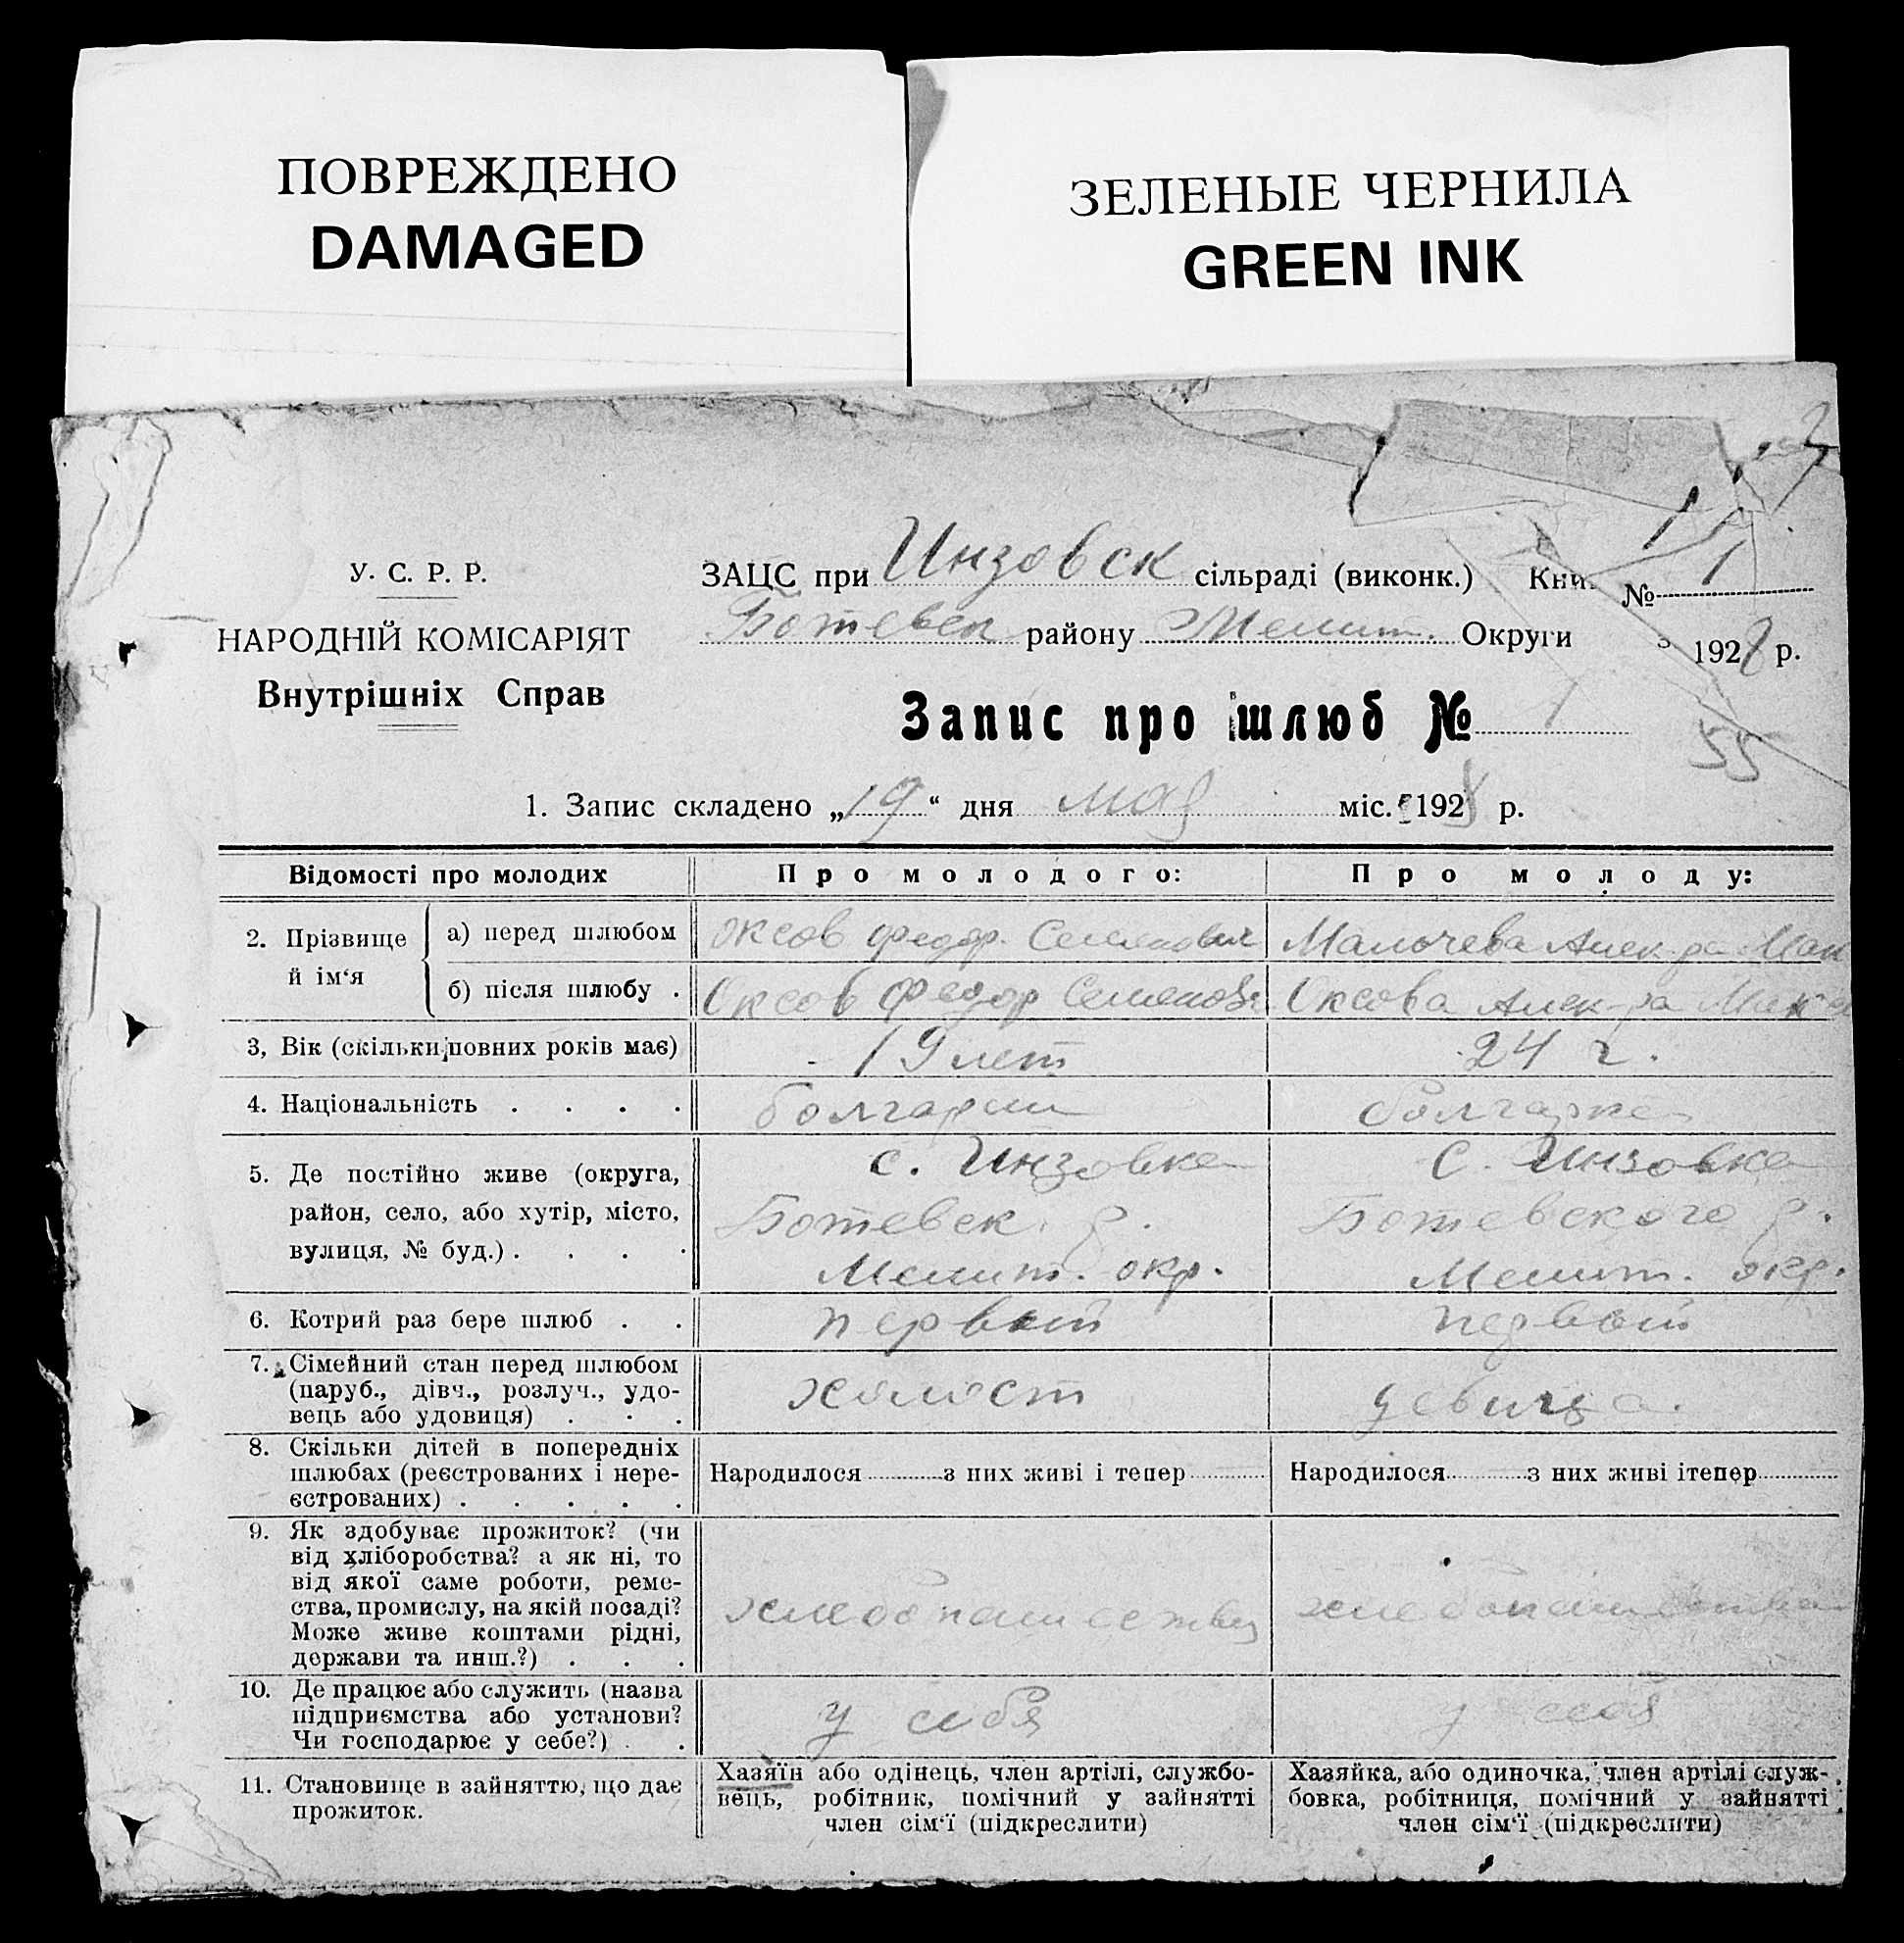 ПОВРЕЖДЕНО
DAMAGED
ЗЕЛЕНЫЕ ЧЕРНИЛА
GREEN INK
У. С. Р. Р.
НАРОДНІЙ КОМІСАРІЯТ
Внутрішніх Справ
ЗАЦС при Инзовск сільраді (виконк.) Кни № 1
Ботевск району Мелит. Округи з 1928 р.
Запис про шлюб № 1
55
1. Запис складено „19“ дня мая міс. 1928 р.
Відомості про молодих Про молодого: Про молоду:
2. Прізвище й ім‘я
а) перед шлюбом Оксов Федор. Семенович Алек-ра
б) після шлюбу . Оксов Федор Семенов Оксова Алек-ра
3, Вік (скільки повних років має) 19 лет 24 г.
4. Національність . . . . болгарин болгарка
5. Де постійно живе (округа, с. Инзовка С. Инзовка
район, село, або хутір, місто, Ботевск. р. Ботевского р.
вулиця, № буд.) . . . . Мелит. окр. Мелит. окр.
6. Котрий раз бере шлюб . . первый первый
7. Сімейний стан перед шлюбом
(паруб., дівч., розлуч., удо- холост девица.
вець або удовиця) . . .
8. Скільки дітей в попередніх
шлюбах (реєстрованих і нере- Народилося з них живі і тепер Народилося з них живі ітепер
єстрованих) . . . . .
9. Як здобуває прожиток? (чи
від хліборобства? а як ні, то
від якої саме роботи, реме-
ства, промислу, на якій посаді?
Може живе коштами рідні,
держави та инш.?) . . .
10. Де працює або служить (назва
підприємства або установи? у себя у себя
Чи господарює у себе?) . .
11. Становище в зайняттю, що дає
прожиток.
Хазяїн або одінець, член артілі, службо-
вець, робітник, помічний у зайнятті
член сім‘ї (підкреслити)
Хазяйка, або одиночка, член артілі служ-
бовка, робітниця, помічний у зайнятті
член сім‘ї (підкреслити)